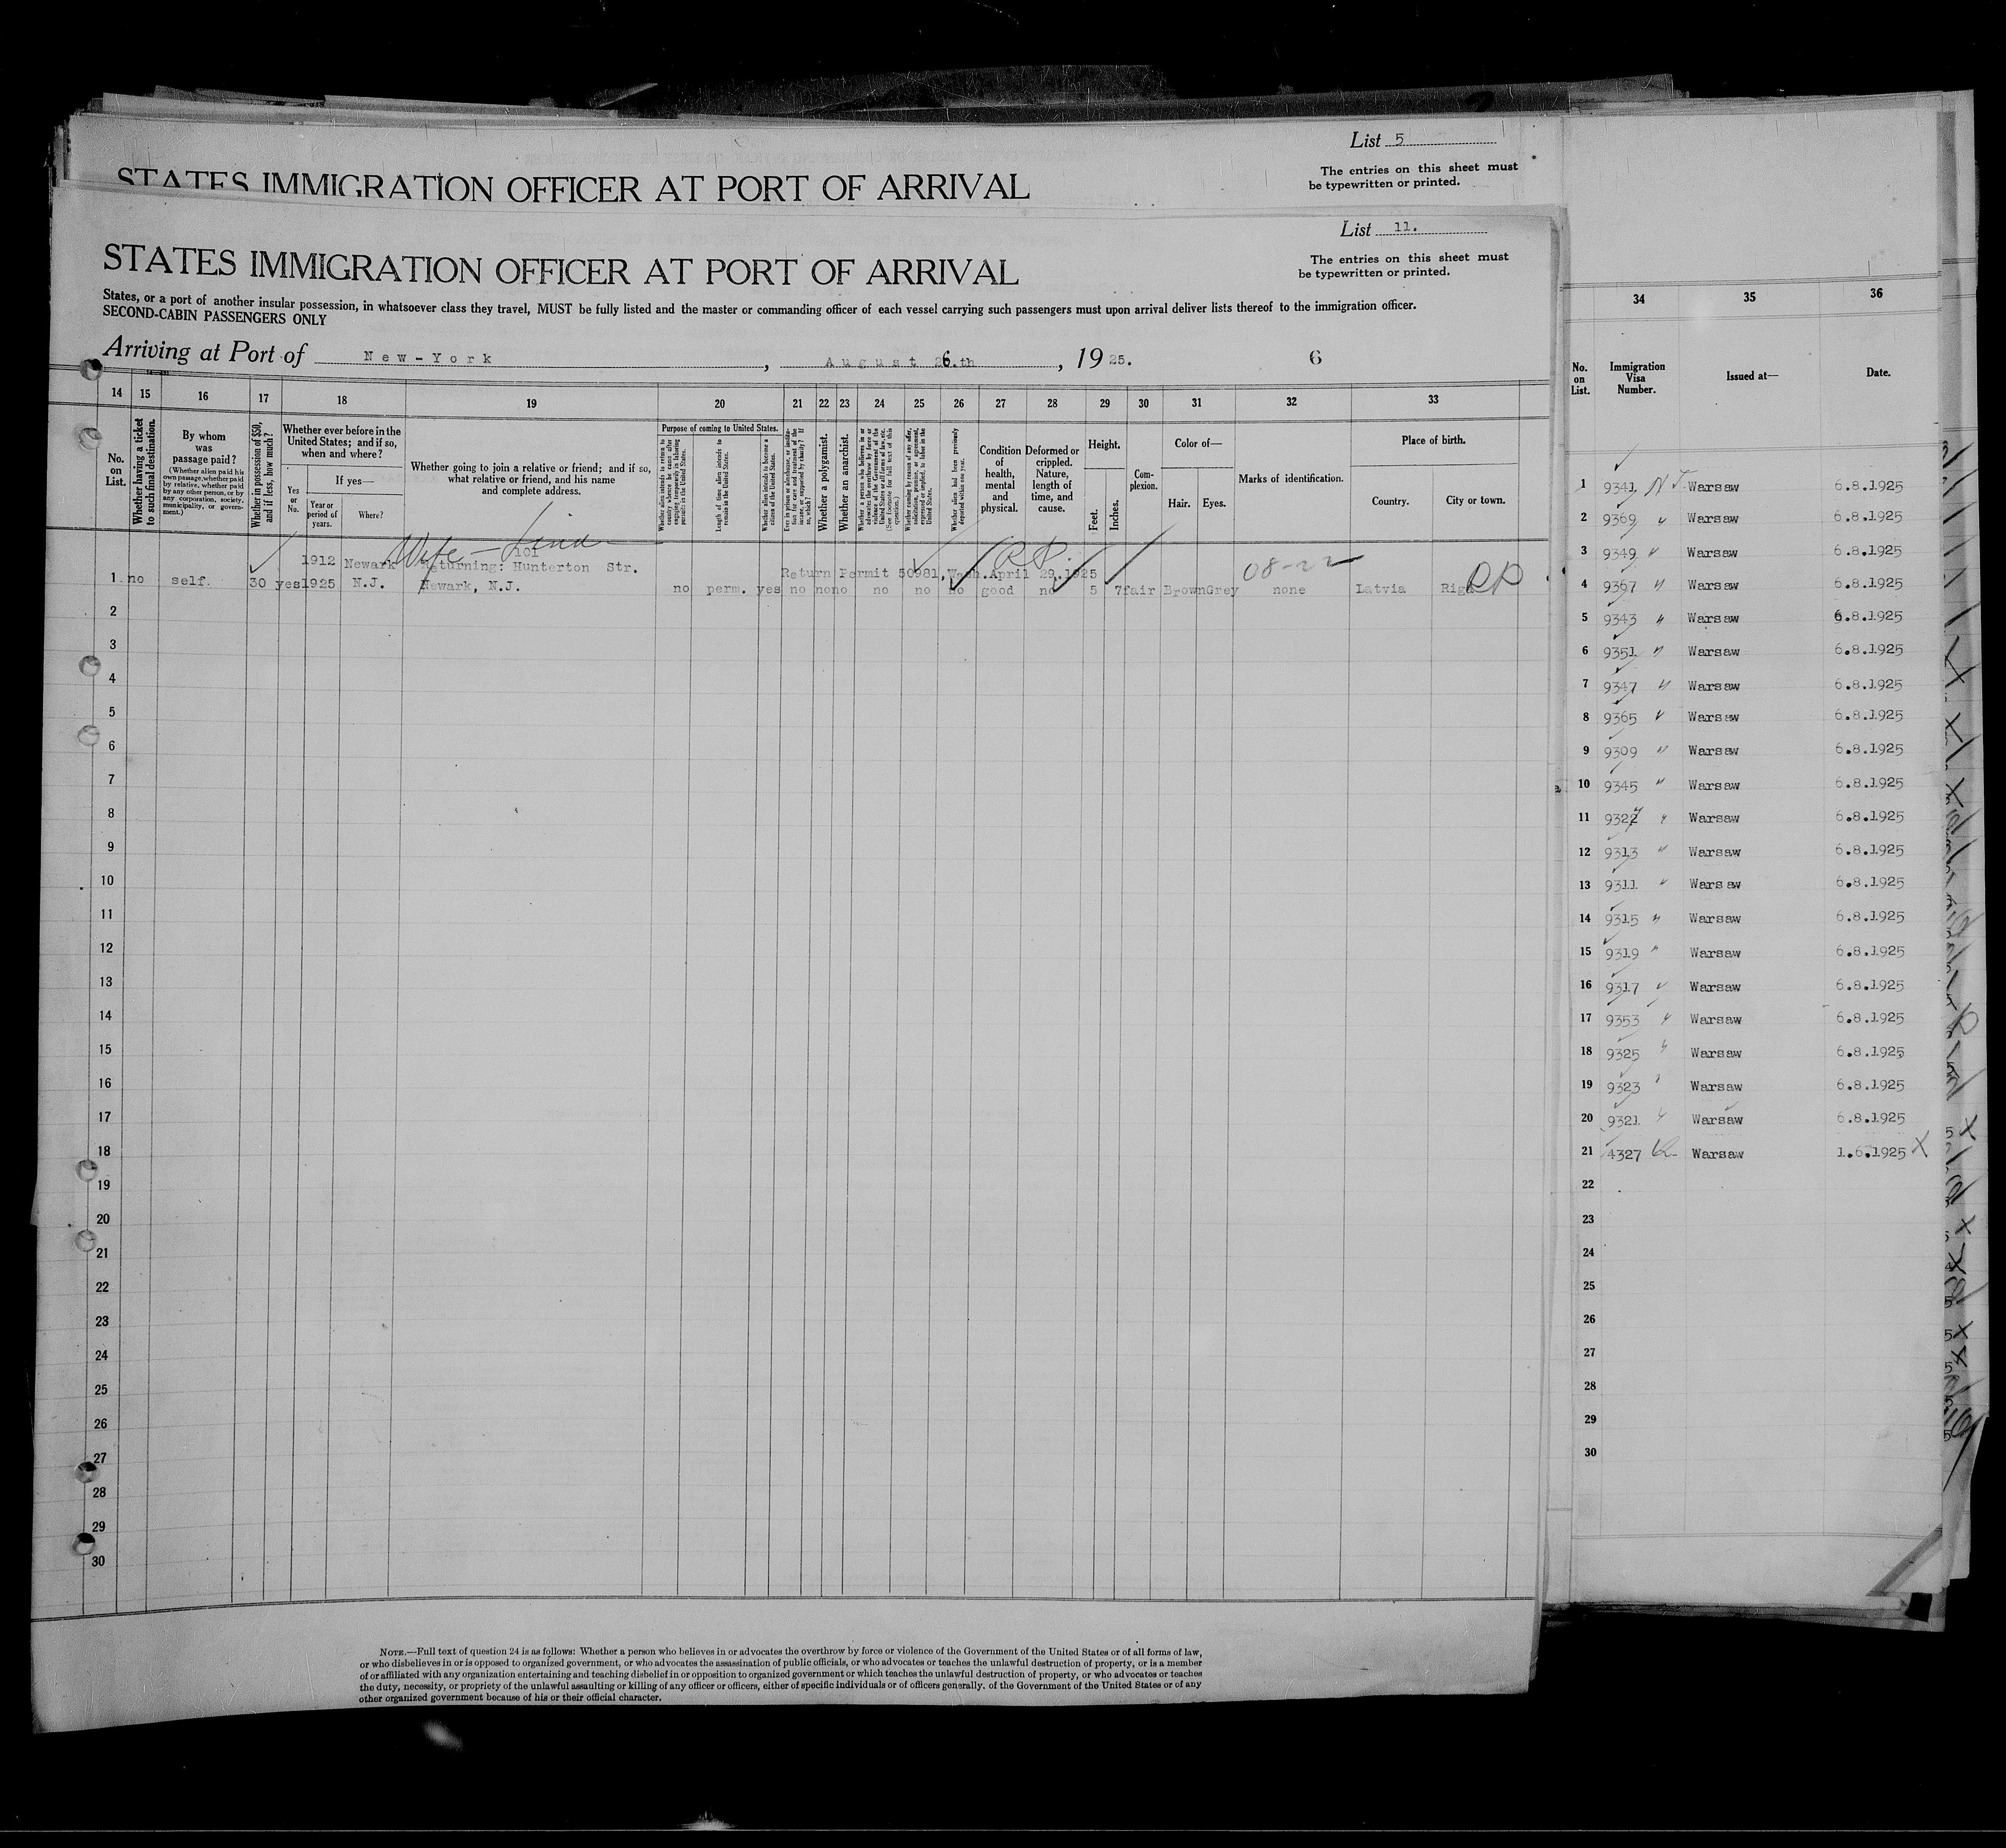 List 5
The entries on this sheet must
be typewritten or printed.
STATES IMMIGRATION OFFICER AT PORT OF ARRIVAL
List 11.
The entries on this sheet must
be typewritten or printed.
STATES IMMIGRATION OFFICER AT PORT OF ARRIVAL
States, or a port of another insular possession, in whatsoever class they travel, MUST be fully listed and the master or commanding officer of each vessel carrying such passengers must upon arrival deliver lists thereof to the immigration officer.
SECOND-CABIN PASSENGERS ONLY
Arriving at Port of New-York, August 26.th, 1925. 6
14 15 16 17 18 19 20 21 22 23 24 25 26 27 28 29 30 31 32 33
No. on List.
Whether having a ticket to such final destination.
By whom was passage paid?
(Whether alien paid his own passage, whether paid by relative, whether paid by any other person, or by any corporation, society, municipality, or government.)
Whether in possession of $50, and if less, how much?
Whether ever before in the United States; and if so, when and where?
Yes or No.
If yes—
Year or period of years.
Where?
Whether going to join a relative or friend; and if so, what relative or friend, and his name and complete address.
Purpose of coming to United States.
Whether alien intends to return to country whence he came after engaging temporarily in laboring pursuits in the United States.
Length of time alien intends to remain in the United States.
Whether alien intends to become a citizen of the United States.
Ever in prison or almshouse, or institution for care and treatment of the insane, or supported by charity? If so, which?
Whether a polygamist.
Whether an anarchist.
Whether a person who believes in or advocates the overthrow by force or violence of the Government of the United States or all forms of law, etc. (See footnote for full text of this question.)
Whether coming by reason of any offer, solicitation, promise, or agreement, expressed or implied, to labor in the United States.
Whether alien had been previously deported within one year.
Condition of health, mental and physical.
Deformed or crippled. Nature, length of time, and cause.
Height.
Feet.
Inches.
Complexion.
Color of—
Hair.
Eyes.
Marks of identification.
Place of birth.
Country.
City or town.
Wife —
101
1912 Newark Returning: Hunterton Str.
RP
08-22
Return Permit 50981, Wash. April 29.1925
1 no self. 30 yes 1925 N.J. Newark, N.J. no perm. yes no no no no no no good no 5 7 fair Brown Grey none Latvia Riga RP
2
3
4
5
6
7
8
9
10
11
12
13
14
15
16
17
18
19
20
21
22
23
24
25
26
27
28
29
30
NOTE.—Full text of question 24 is as follows: Whether a person who believes in or advocates the overthrow by force or violence of the Government of the United States or of all forms of law,
or who disbelieves in or is opposed to organized government, or who advocates the assassination of public officials, or who advocates or teaches the unlawful destruction of property, or is a member
of or affiliated with any organization entertaining and teaching disbelief in or opposition to organized government or which teaches the unlawful destruction of property, or who advocates or teaches
the duty, necessity, or propriety of the unlawful assaulting or killing of any officer or officers, either of specific individuals or of officers generally, of the Government of the United States or of any
other organized government because of his or their official character.
34 35 36
No. on List.
Immigration Visa Number.
Issued at—
Date.
1 9341 Warsaw 6.8.1925
2 9369 " Warsaw 6.8.1925
3 9349 " Warsaw 6.8.1925
4 9367 " Warsaw 6.8.1925
5 9343 " Warsaw 6.8.1925
6 9351 " Warsaw 6.8.1925
7 9347 " Warsaw 6.8.1925
8 9365 " Warsaw 6.8.1925
9 9309 " Warsaw 6.8.1925
10 9345 " Warsaw 6.8.1925
11 " Warsaw 6.8.1925
12 9313 " Warsaw 6.8.1925
13 9311 " Warsaw 6.8.1925
14 9315 " Warsaw 6.8.1925
15 9319 " Warsaw 6.8.1925
16 9317 " Warsaw 6.8.1925
17 9353 " Warsaw 6.8.1925
18 9325 " Warsaw 6.8.1925
19 9323 " Warsaw 6.8.1925
20 9321 " Warsaw 6.8.1925
21 4327 Warsaw 1.6.1925 X
22
23
24
25
26
27
28
29
30